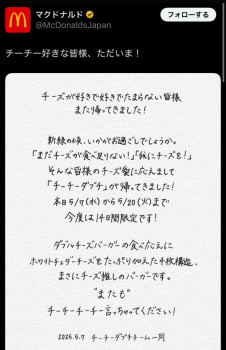 マクドナルド
@McDonaldsJapan
フォローする
チーチー好きな皆様、ただいま！
チーズが好きで好きでたまらない皆様
またり帰ってきました！
新緑の候、いかがお過ごしでしょうか。
「まだチーズが食べ足りない！」「私にチーズを！」
そんな皆様のチーズ愛に応えまして
「チーチーダブチ」が帰ってきました！
本日5/7(水)から5/20(火)まで
今度は14日間限定です！
ダブルチーズバーガーの食べ応えに
ホワイトチェダーチーズをたっぷり加えた4枚構造、
まさにチーズ推しのバーガーです。
"またも"
チーチーチーチー言っちゃってください！
2025.5.7 チーチーダブチチーム一同